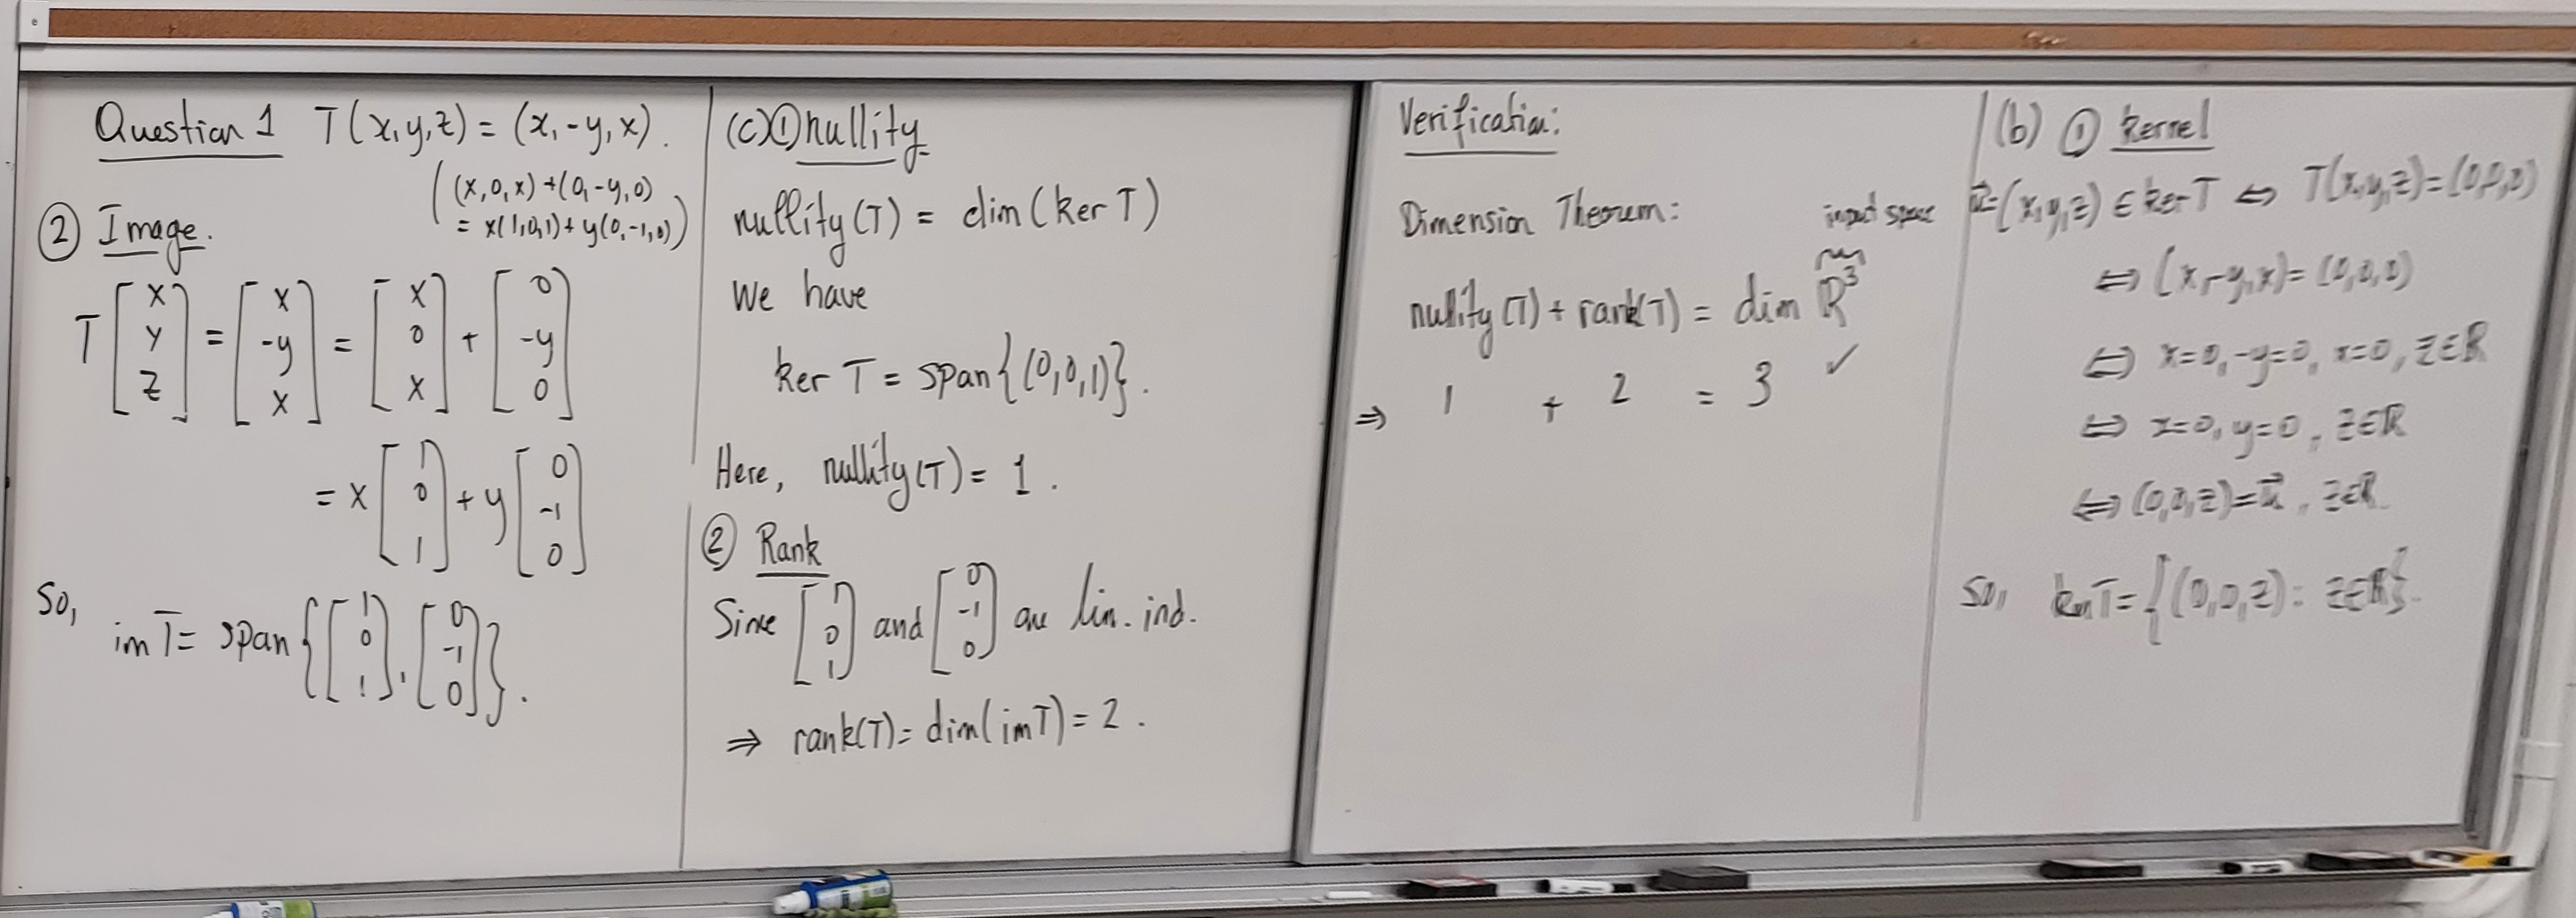 Question 1 T(x,y,z) = (x,-y,x).
( (x,0,x)+(0,-y,0)
= x(1,0,1)+y(0,-1,0) )
② Image.
T [x y z] = [x -y x] = [x 0 x] + [0 -y 0]
= x [1 0 1] + y [0 -1 0]
So,
im T = span { [1 0 1], [0 -1 0] }.
(c) ① nullity
nullity(T) = dim(ker T)
We have
ker T = span{(0,0,1)}.
Here, nullity(T) = 1.
② Rank
Since [1 0 1] and [0 -1 0] are lin. ind.
⇒ rank(T) = dim(im T) = 2.
Verification:
Dimension Theorem:
input space
nullity(T) + rank(T) = dim R³
⇒ 1 + 2 = 3 ✓
(b) ① kernel
u⃗=(x,y,z) ∈ ker T ⇔ T(x,y,z)=(0,0,0)
⇔ (x,-y,x)=(0,0,0)
⇔ x=0, -y=0, x=0, z∈R
⇔ x=0, y=0, z∈R
⇔ (0,0,z)=u⃗, z∈R
So, ker T = {(0,0,z): z∈R}.